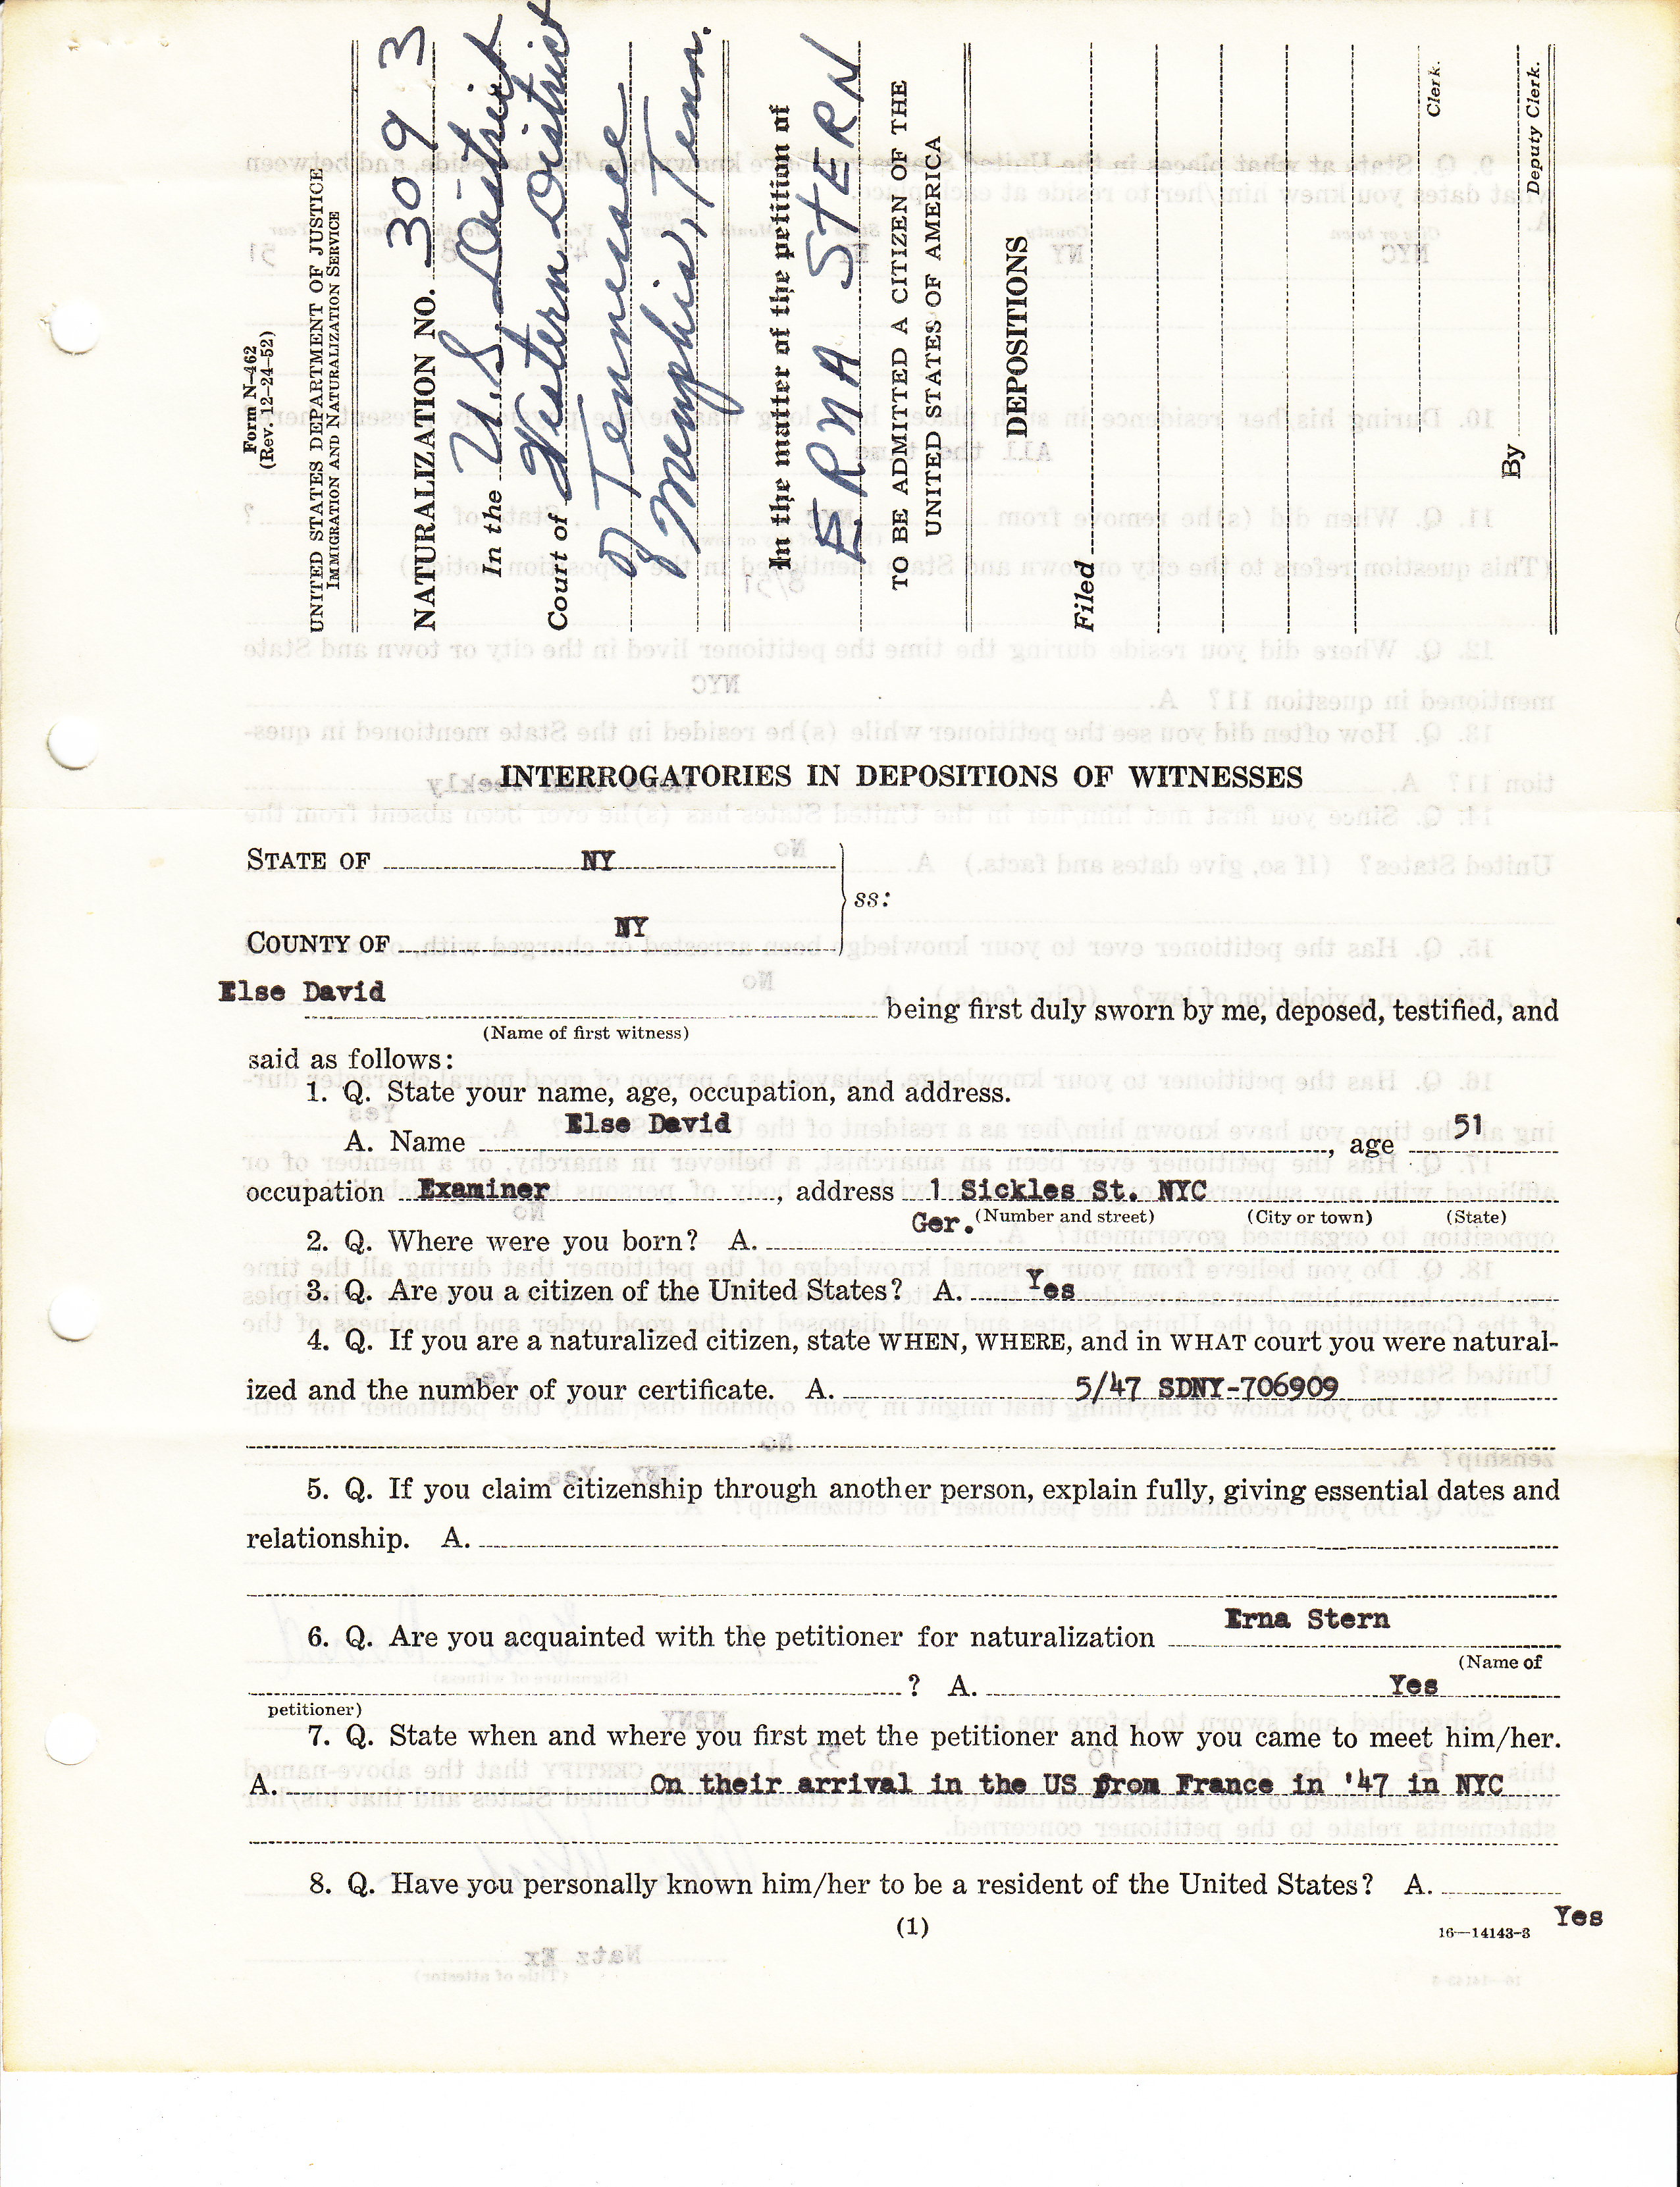 Form N-462
(Rev. 12-24-52)
UNITED STATES DEPARTMENT OF JUSTICE
IMMIGRATION AND NATURALIZATION SERVICE
NATURALIZATION NO. 3093
In the U.S. District
Court of Western District
of Tennessee
Memphis, Tenn.
In the matter of the petition of
ERNA STERN
TO BE ADMITTED A CITIZEN OF THE
UNITED STATES OF AMERICA
DEPOSITIONS
Filed
Clerk.
By
Deputy Clerk.
INTERROGATORIES IN DEPOSITIONS OF WITNESSES
STATE OF NY
ss:
COUNTY OF NY
Else David being first duly sworn by me, deposed, testified, and
(Name of first witness)
said as follows:
1. Q. State your name, age, occupation, and address.
A. Name Else David, age 51
occupation Examiner, address 1 Sickles St. NYC
(Number and street) (City or town) (State)
2. Q. Where were you born? A. Ger.
3. Q. Are you a citizen of the United States? A. Yes
4. Q. If you are a naturalized citizen, state WHEN, WHERE, and in WHAT court you were natural-
ized and the number of your certificate. A. 5/47 SDNY-706909
5. Q. If you claim citizenship through another person, explain fully, giving essential dates and
relationship. A.
6. Q. Are you acquainted with the petitioner for naturalization Erna Stern
(Name of
? A. Yes
petitioner)
7. Q. State when and where you first met the petitioner and how you came to meet him/her.
A. On their arrival in the US from France in '47 in NYC
8. Q. Have you personally known him/her to be a resident of the United States? A.
Yes
(1)
16—14143-3